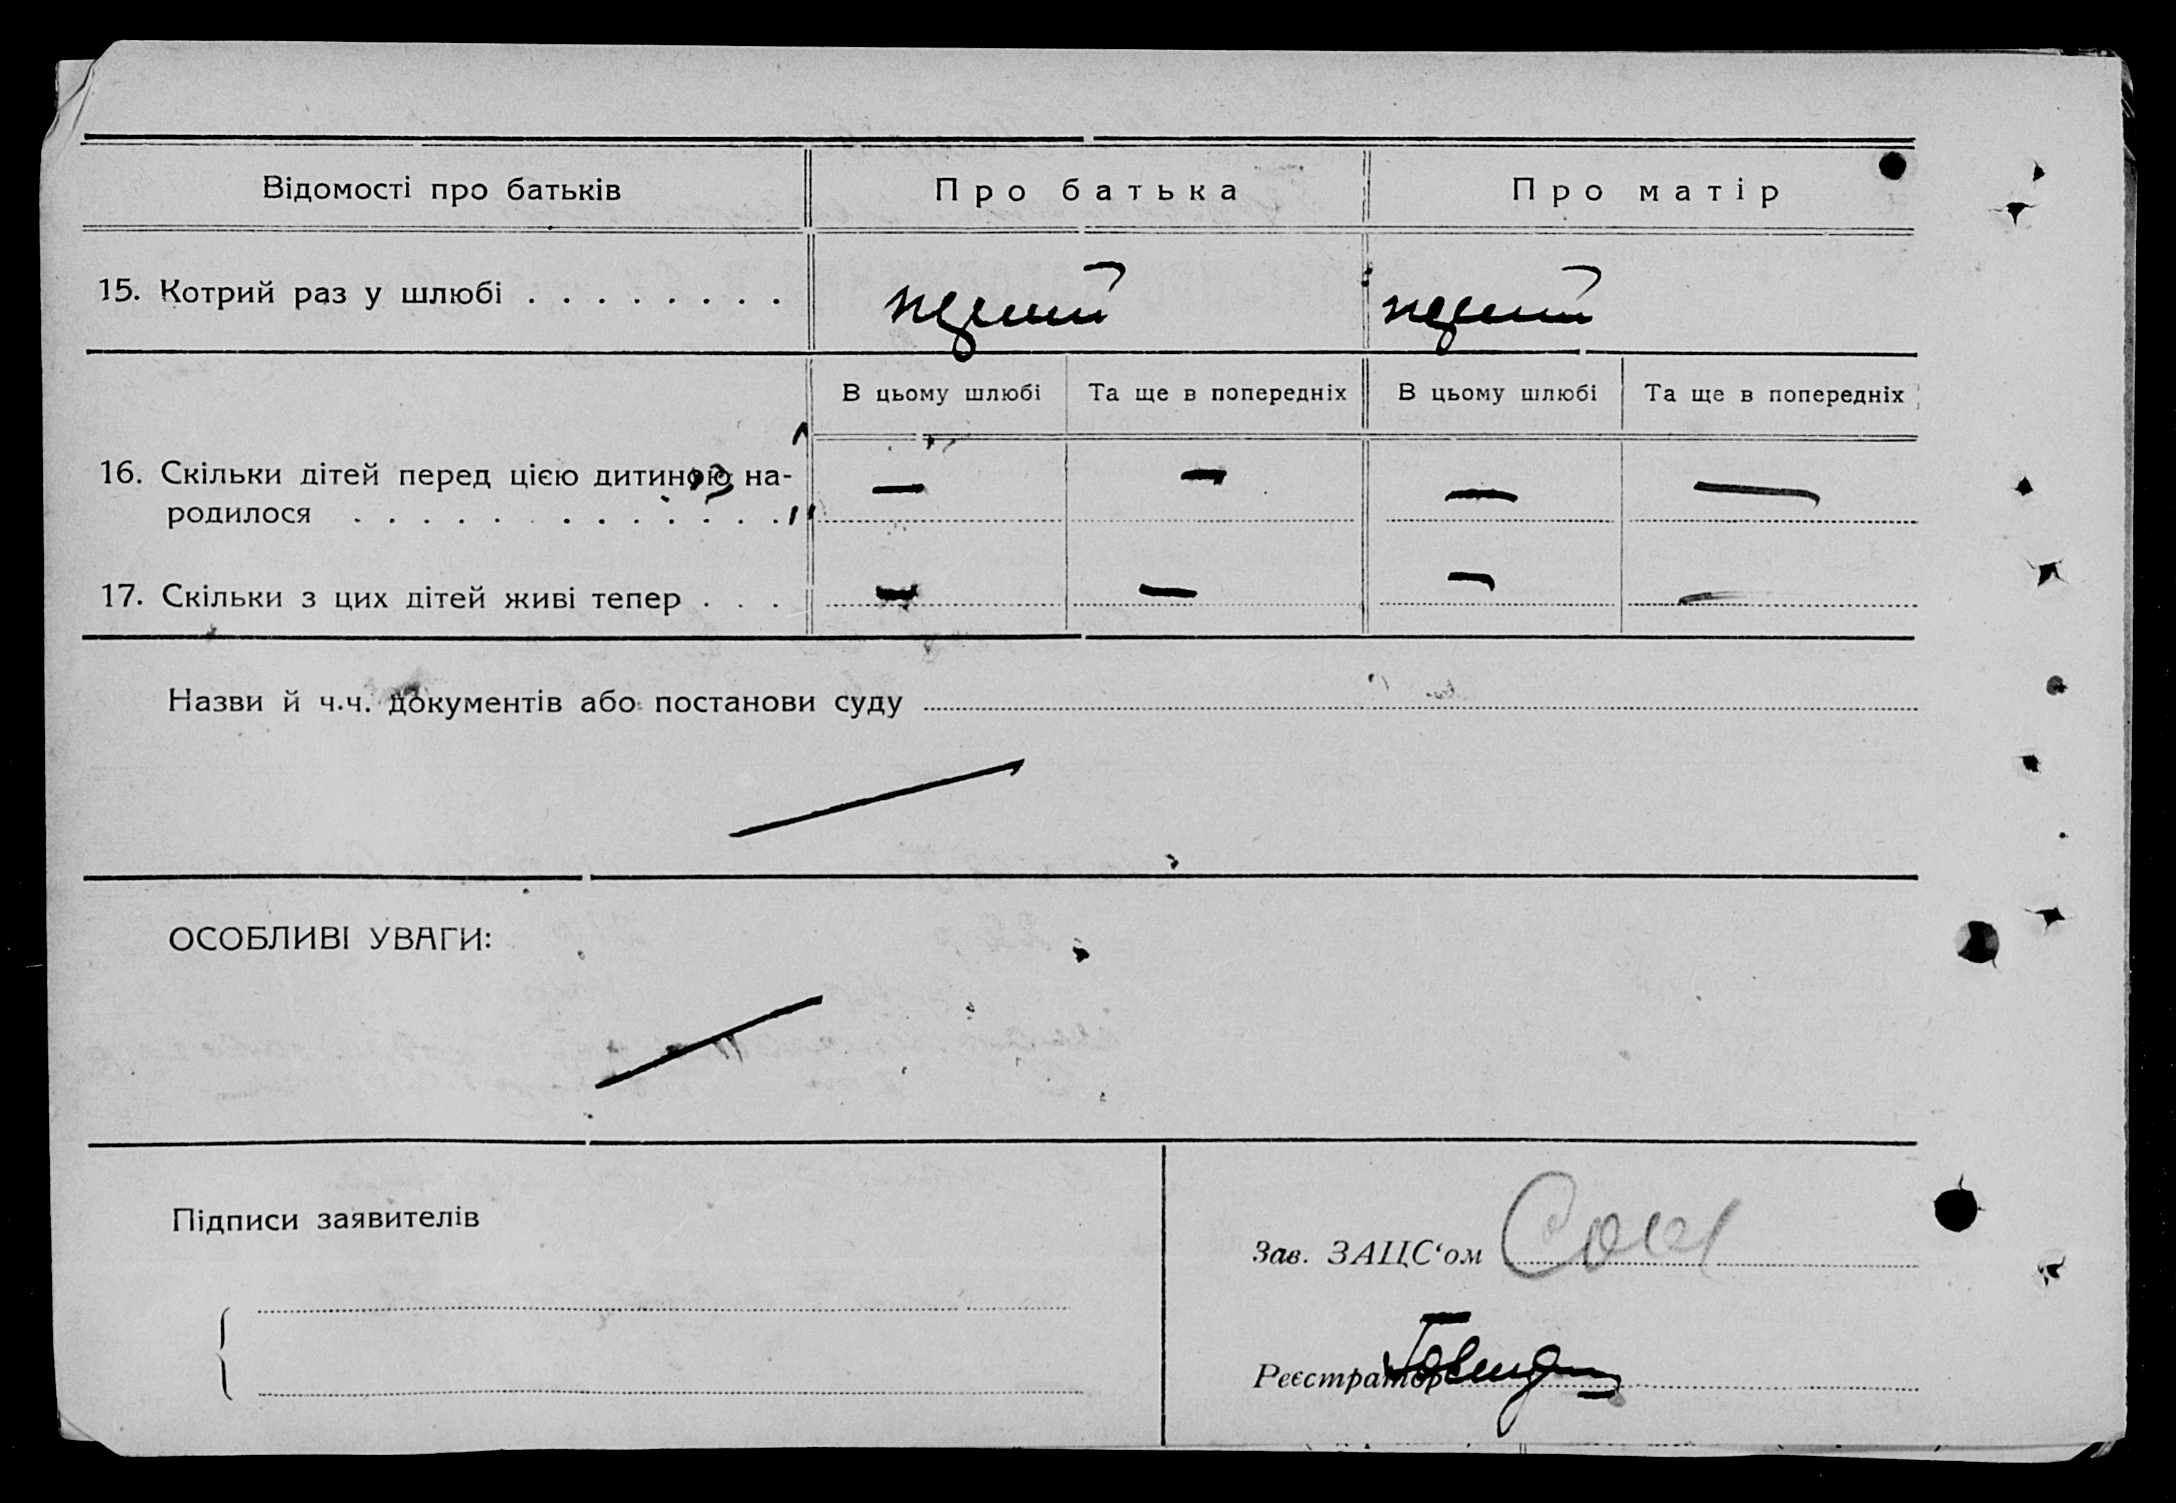 Відомості про батьків
Про батька
Про матір
15. Котрий раз у шлюбі . . . . . . . .
В цьому шлюбі
Та ще в попередніх
В цьому шлюбі
Та ще в попередніх
16. Скільки дітей перед цією дитиною на-
родилося . . . . . . . . . . . . .
— — — —
17. Скільки з цих дітей живі тепер . . .
— — — —
Назви й ч.ч. документів або постанови суду
ОСОБЛИВІ УВАГИ:
Підписи заявителів
Зав. ЗАЦС‘ом
Реєстратор